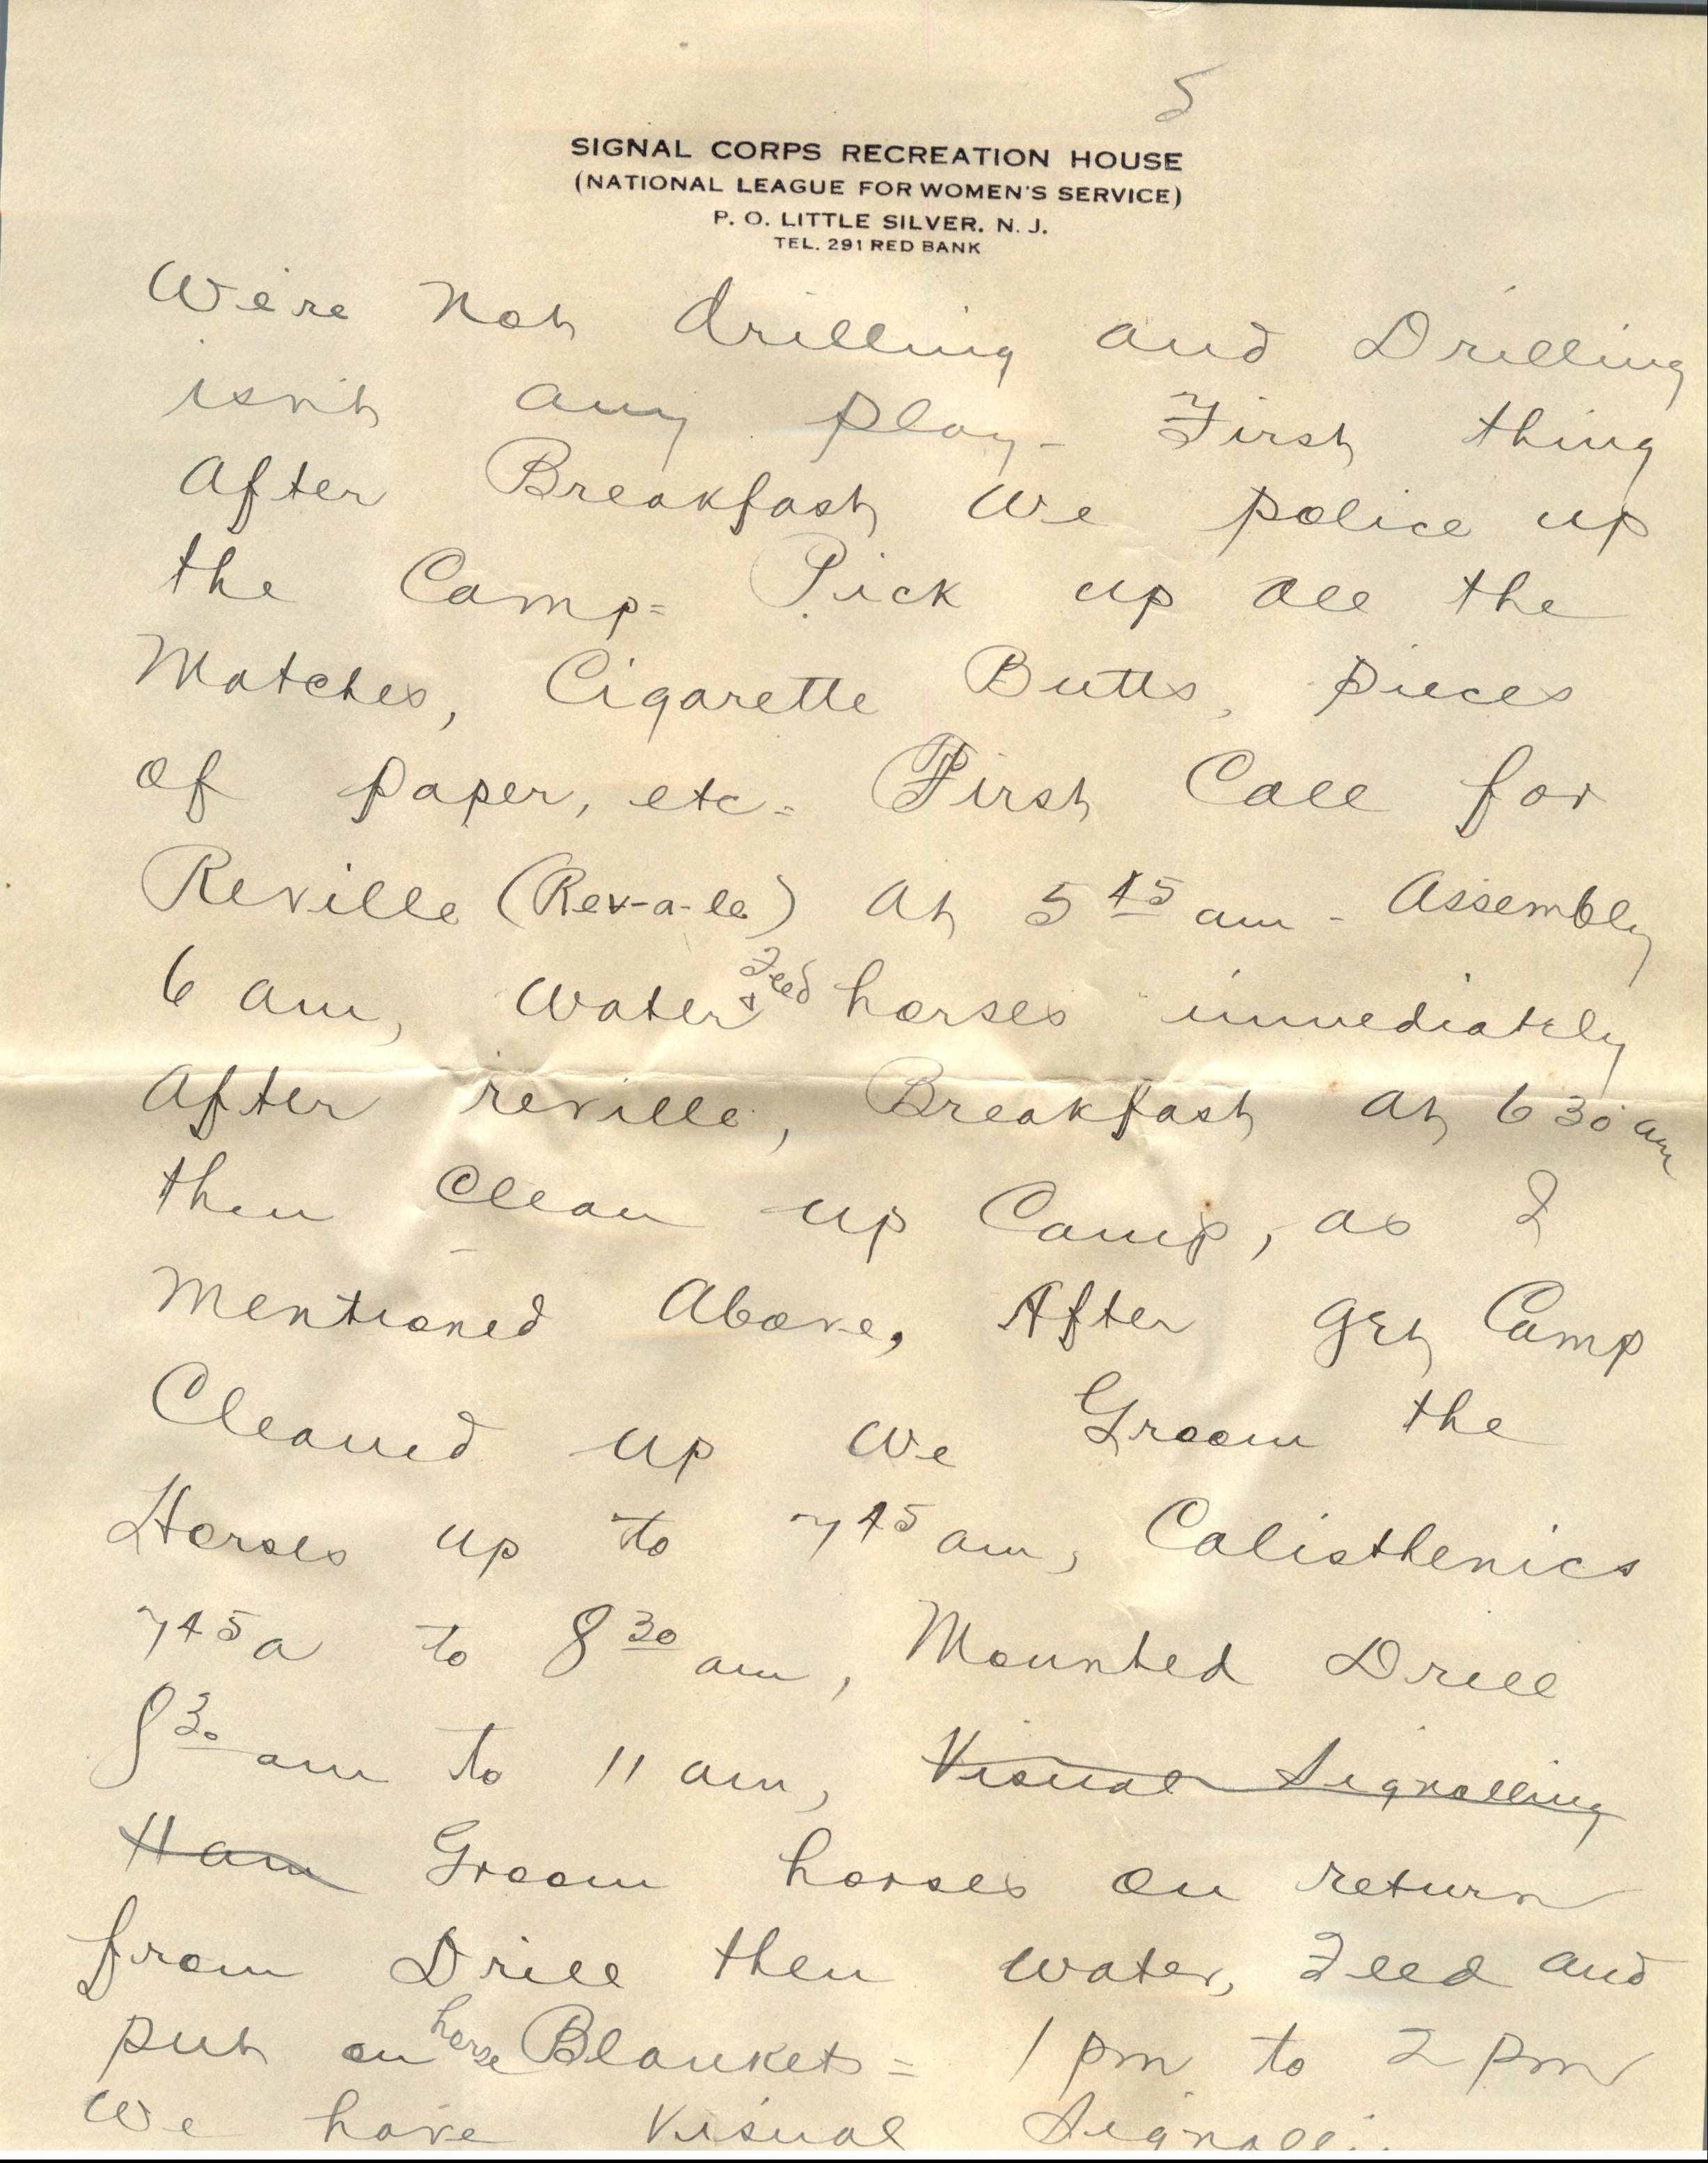 5
SIGNAL CORPS RECREATION HOUSE
(NATIONAL LEAGUE FOR WOMEN'S SERVICE)
P. O. LITTLE SILVER, N. J.
TEL. 291 RED BANK
We're not drilling and Drilling
isn't any play - First thing
After Breakfast We police up
the Camp = Pick up all the
Matches, Cigarette Butts, pieces
of paper, etc = First Call for
Reville (Rev-a-le) At 5 45 am - Assembly
6 am, Water & Feed horses immediately
After reville, Breakfast At 6 30 am
then Clean up Camp, as I
Mentioned Above, After get Camp
Cleaned up We Groom the
Horses up to 7 45 am, Calisthenics
7 45 a to 8 30 am, Mounted Drill
8 30 am to 11 am, Visual Signalling
11 am Groom horses on return
from Drill then water, Feed and
put on horse Blankets = 1 pm to 2 pm
We have Visual